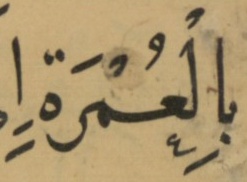 بِالْعُمْرَةِ إِ